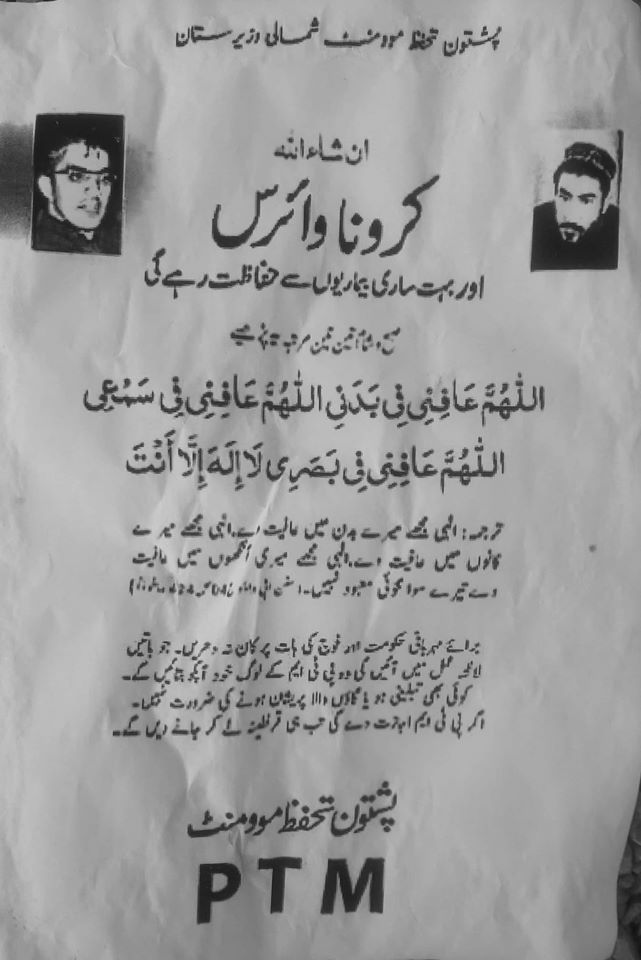 پشتون تحفظ موومنٹ شمالی وزیرستان
ان شاء اللہ
کرونا وائرس
اور بہت ساری بیماریوں سے حفاظت رہے گی
صبح و شام تین تین مرتبہ یہ پڑھیے
اَللّٰهُمَّ عَافِنِی فِی بَدَنِی اَللّٰهُمَّ عَافِنِی فِی سَمْعِی
اَللّٰهُمَّ عَافِنِی فِی بَصَرِی لَا إِلَهَ إِلَّا أَنْتَ
ترجمہ: الٰہی مجھے میرے بدن میں عافیت دے۔ الٰہی مجھے میرے
کانوں میں عافیت دے۔ الٰہی مجھے میری آنکھوں میں عافیت
دے تیرے سوا کوئی معبود نہیں۔
برائے مہربانی حکومت اور فوج کی بات پر کان نہ دھریں۔ جو باتیں
لائحہ عمل میں آئیں گی وہ پی ٹی ایم کے لوگ خود آپکو بتائیں گے۔
کوئی بھی تبلیغی ہو یا گاؤں والا پریشان ہونے کی ضرورت نہیں۔
اگر پی ٹی ایم اجازت دے گی تب ہی قرنطینہ لے کر جانے دیں گے۔
پشتون تحفظ موومنٹ
PTM